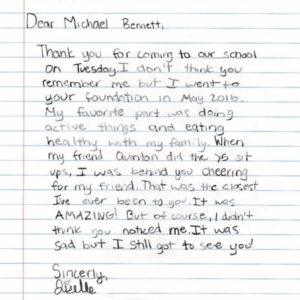 Dear Michael Bennett,
Thank you for coming to our school
on Tuesday. I don't think you
remember me but I went to
your foundation in May 2016.
My favorite part was doing
active things and eating
healthy with my family. When
my friend Quinton did the 75 sit
ups, I was behind you cheering
for my friend. That was the closest
I've ever been to you. It was
AMAZING! But of course, I didn't
think you noticed me. It was
sad but I still got to see you!
Sincerly,